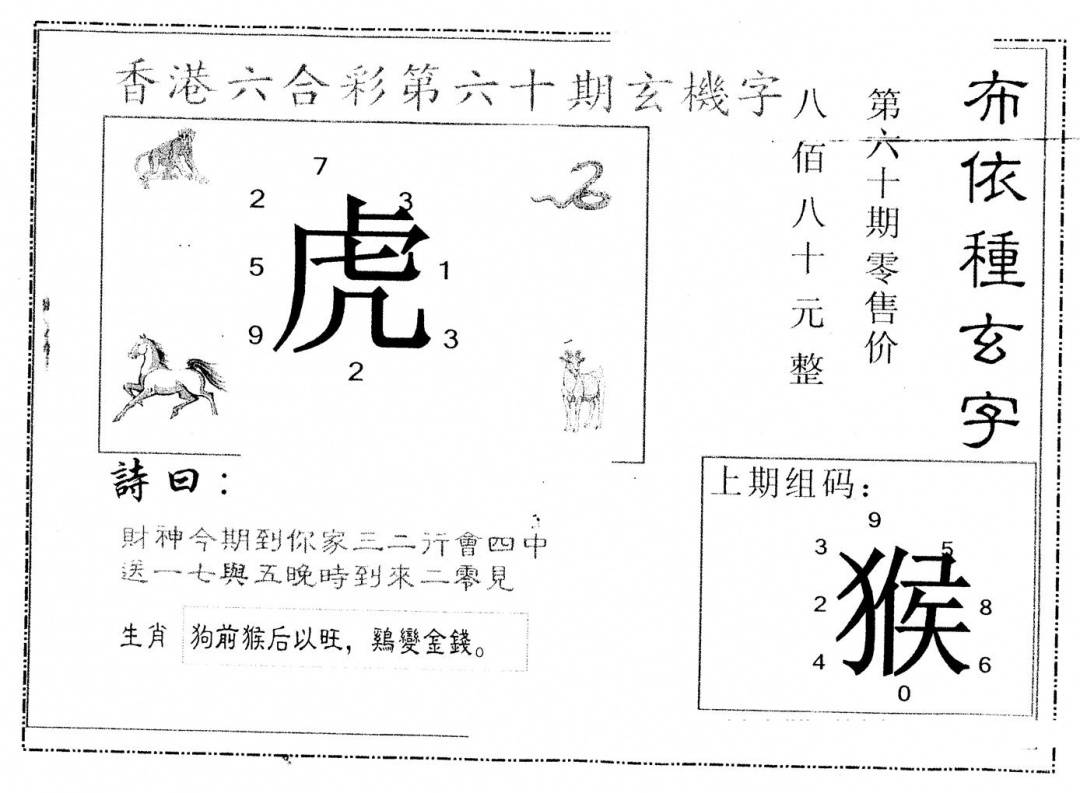 香港六合彩第六十期玄機字
布依種玄字
第六十期零售价
八佰八十元整
7
2
3
虎
5
1
9
3
2
詩曰：
財神今期到你家三二行會四中
送一七與五晚時到來二零見
生肖 狗前猴后以旺，鷄變金錢。
上期组码：
9
3
5
猴
2
8
4
6
0